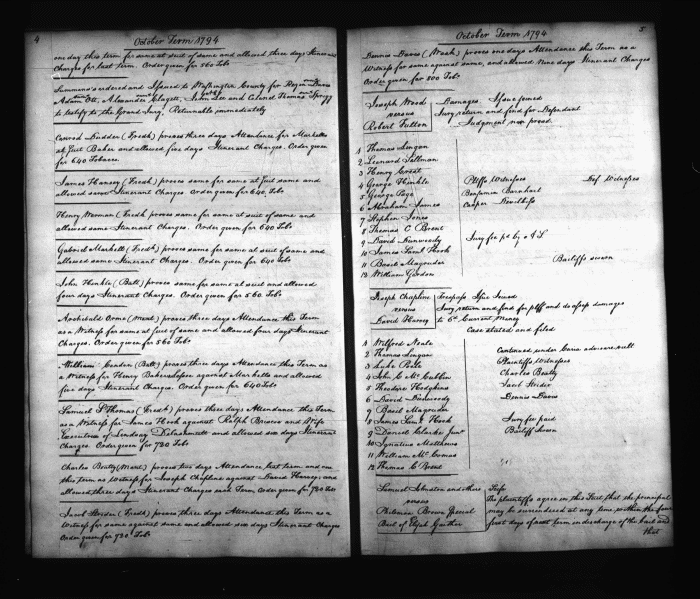 4
October Term 1794
one day this term for same at suit of same and allowed three days Itinerant
Charges for last term. Order given for 560 Tobo
Summons ordered and Issued to Washington County for
Adam Ott, Alexander Clagett, John Lee and Colonel Thomas Sprigg
to testify to the Grand Jury, Returnable immediately
Budden (Fredk) proves three days Attendance for Markells
at Suit Baker and allowed five days Itinerant Charges. Order given
for 640 Tobacco.
James Hansey (Fredk) proves same for same at Suit same and
allowed same Itinerant Charges. Order given for 640 Tobo
Henry Norman (Fredk) proves same for same at suit of same and
allowed same Itinerant Charges. Order given for 640
Gabriel Markell (Fredk) proves same for same at suit of same and
allowed same Itinerant Charges. Order given for 640 Tobo
John Hinkle (Balt) proves same for same at suit same and allowed
four days Itinerant Charges. Order given for 560 Tobo.
Archibald Orme (Mont) proves three days Attendance this Term
as a Witness for same at suit of same and allowed four days Itinerant
Charges. Order given for 560 Tobo
William (Balt) proves three days Attendance this Term as
a Witness for Henry against Markells and allowed
five days Itinerant Charges. Order given for 640 Tobo
Samuel St Thomas (Fredk) proves three days Attendance this Term
as a Witness for James Hook against Ralph Briscoe and Wife
Executrix of Lindsey and allowed six days Itinerant
Charges. Order given for 720 Tobo
Charles Beaty (Mont) proves two days Attendance last term and one
this term as Witness for Joseph Chapline against David Harvey, and
allowed three days Itinerant Charges each Term. Order given for 720 Tobo
Jacob Streider (Fredk) proves three days Attendance this Term as a
Witness for same against same and allowed six days Itinerant Charges
Order given for 720 Tobo
October Term 1794
5
Dennis Davis (Wash) proves one days Attendance this Term as a
Witness for same against same, and allowed Nine days Itinerant Charges
Order given for 800 Tobo
Joseph Wood
versus
Robert Fulton
Damages Issue joined
Jury return and find for Defendant
Judgment non prosd.
1 Thomas Simpson
2 Leonard Sallman
3 Henry Crost
4 George Hinkle
5 George Page
6 Abraham James
7 Stephen Jones
8 Thomas C Brent
9 David Dunwoody
10 James Saml Hook
11 Basil Magruder
12 William Gordon
Pltffs Witnesses
Def Witnesses
Benjamin Barnhart
Casper Devilbiss
Jury fee pd by
Bailiffs sworn
Joseph Chapline
versus
David Harvey
Trespass Issue Joined
Jury return and find for pltff and do assess damages
to 6d Current Money
Case stated and filed
1 Wilford Neale
2 Thomas Simpson
3 Luke Poole
4 John C Mc Cubbin
5 Theodore Hodgkins
6 David Dunwoody
7 Basil Magruder
8 James Saml Hook
9 Daniel Clarke Junr
10 Ignatius Matthews
11 William Mc Comas
12 Thomas C Brent
Continued under Curia advisare vult
Plaintiffs Witnesses
Charles Beaty
Jacob Streider
Dennis Davis
Jury fee paid
Bailiff Sworn
Samuel Johnston and others
versus
Philemon Brown Special
Bail of Elijah Gaither
Scifa
The plaintiffs agree in this Suit that the principal
may be surrendered at any time within the four
first days of next term in discharge of the bail and
that